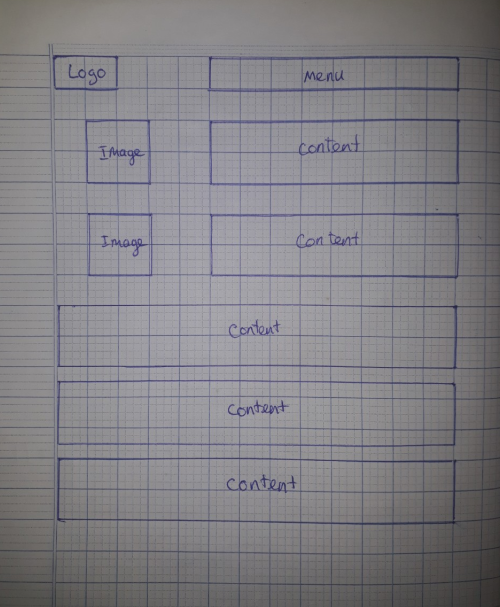 Logo
Menu
Image
Content
Image
Content
Content
Content
Content